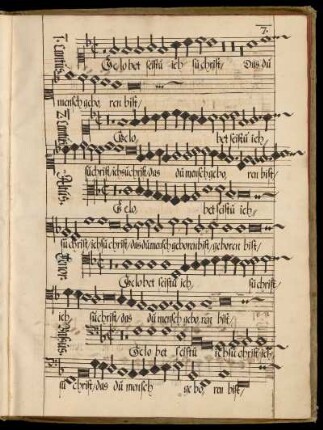 7.
1. Cantus.
Gelobet seistu ich su christ/ Das du
mensch gebo ren bist/
2. Cantus.
Gelo, bet seistu ich,
su christ/ ich su christ/ das du mensch gebo, ren bist/
Altus.
Gelo, bet seistu ich/
su christ/ ich su christ/ das du mensch geboren bist/ geboren bist/
Tenor.
Gelobet seistu ich, su christ/
ich su christ/ das du mensch gebo, ren bist/
Bassus.
Gelo bet seistu ich su christ/ ich/
su christ/ das du mensch ge bo, ren bist/